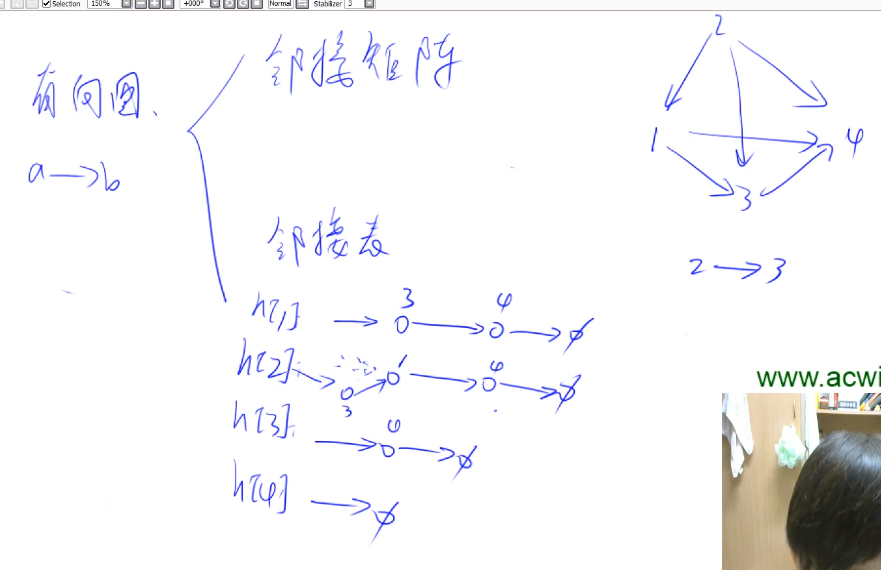 Selection
150%
+000°
Normal
Stabilizer
3
有向图、
a→b
邻接矩阵
邻接表
h[1] → 3 → 4 → ∅
h[2] → 3 → 1 → 4 → ∅
h[3] → 4 → ∅
h[4] → ∅
2
1
4
3
2→3
www.acwi